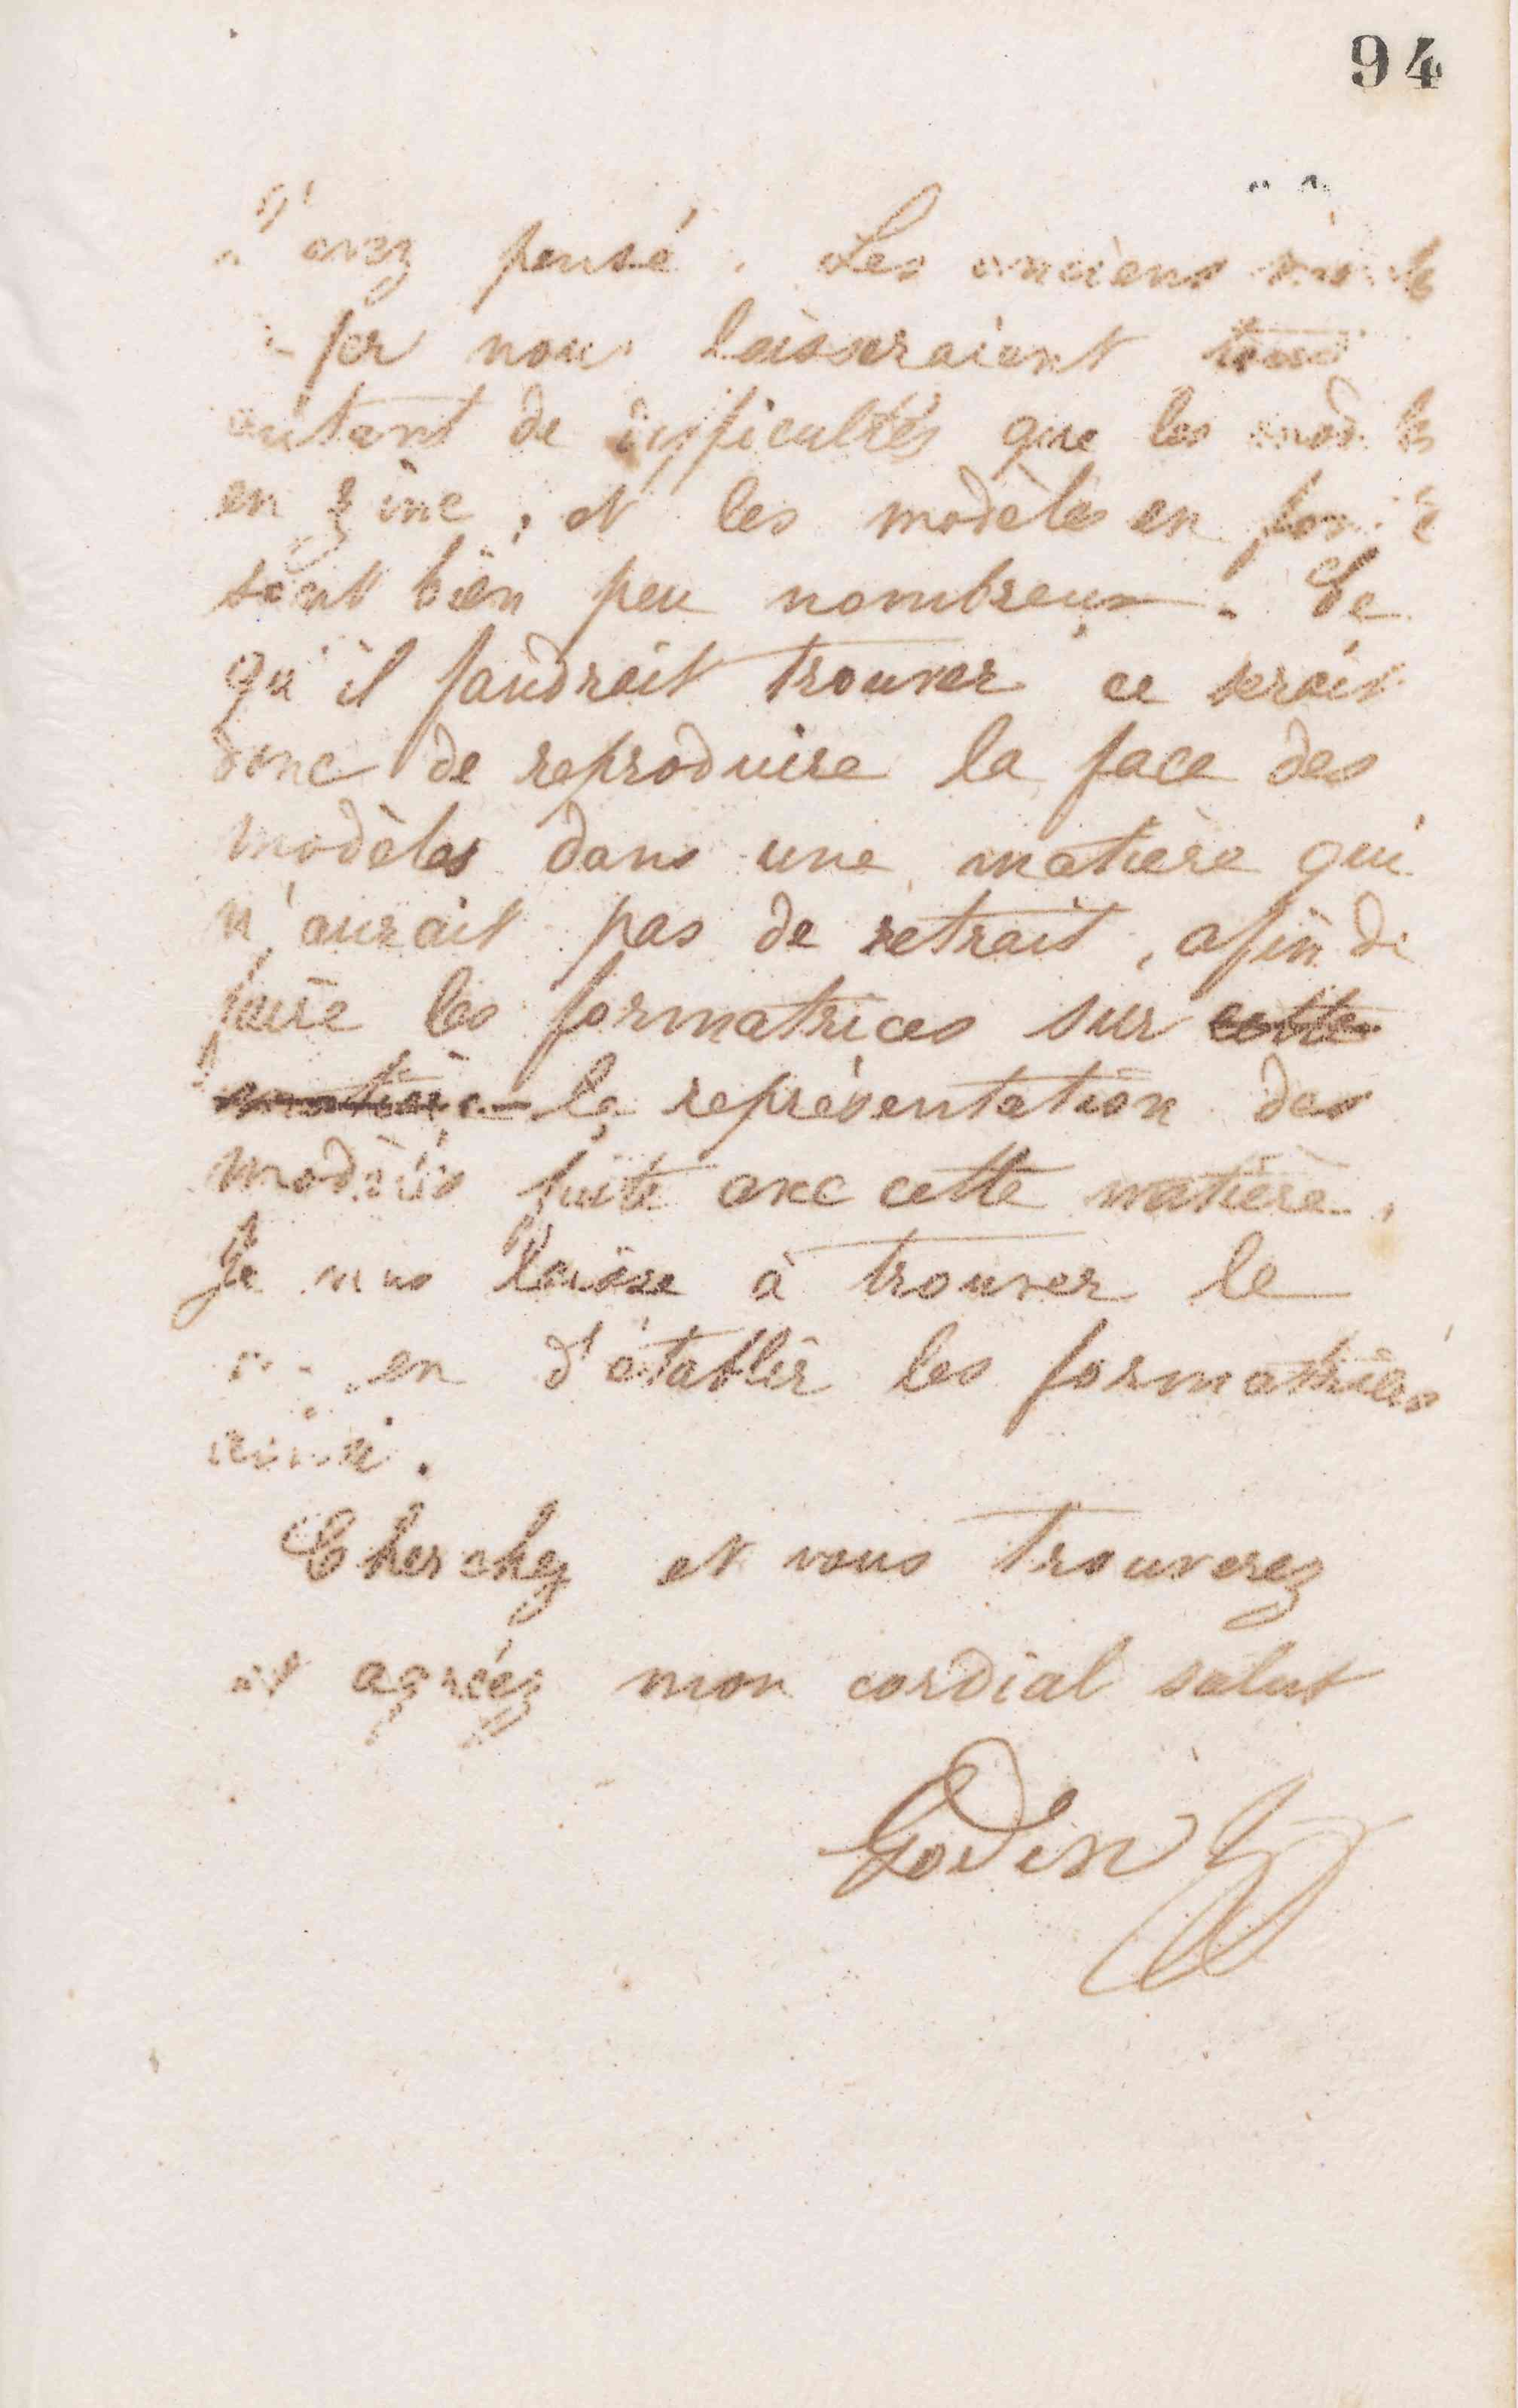 94
l'avez pensé. Les anciens
fer nous laisseraient tout
autant de difficultés que les modèles
en zinc, et les modèles en fonte
sont bien peu nombreux. Ce
qu'il faudrait trouver ce serait
donc de reproduire la face des
modèles dans une matière qui
n'aurait pas de retrait, afin de
faire les formatrices sur cette
matière la représentation des
modèles faite avec cette matière.
Je vous laisse à trouver le
moyen d'établir les formatrices
ainsi.
Cherchez et vous trouverez
et agréez mon cordial salut
Godin